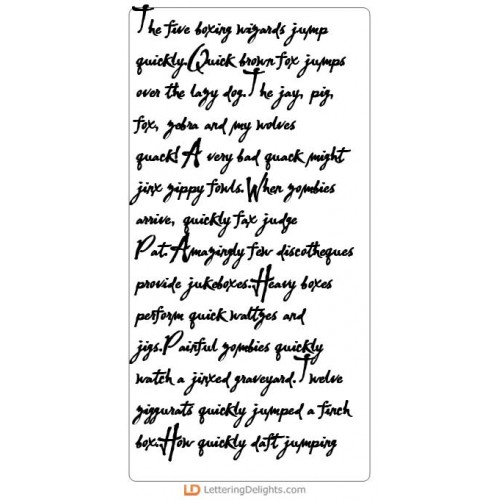 The five boxing wizards jump
quickly.Quick brown fox jumps
over the lazy dog.The jay, pig,
fox, zebra and my wolves
quack!A very bad quack might
jinx zippy fowls.When zombies
arrive, quickly fax judge
Pat.Amazingly few discotheques
provide jukeboxes.Heavy boxes
perform quick waltzes and
jigs.Painful zombies quickly
watch a jinxed graveyard.Twelve
ziggurats quickly jumped a finch
box.How quickly daft jumping
LD LetteringDelights.com